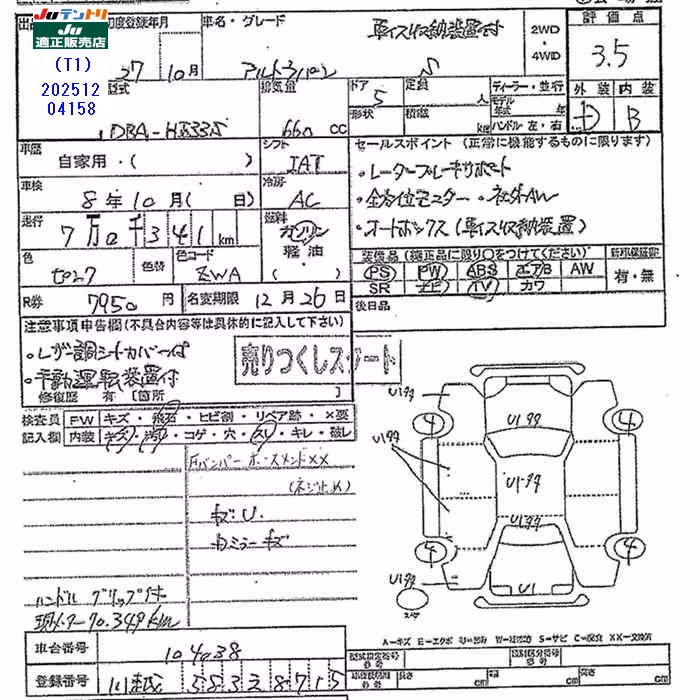 JUテントリ
JU
適正販売店
(T1)
202512
04158
初度登録年月
27年10月
車名・グレード
アルトラパン
車イス収納装置付
2WD・4WD
評価点
3.5
型式
DBA-HE33S
排気量
660 CC
ドア
5
形状
定員
人
積載
kg
ディーラー・並行
モデル年式 年
ハンドル 左・右
外装 内装
D B
車歴
自家用・( )
シフト
IAT
車検
8年10月( 日)
冷房
AC
走行
7万0千341km
燃料
ガソリン
軽油
( )
色
色替
色コード
ZWA
R券
7950円
名変期限
12月26日
セールスポイント(正常に機能するものに限ります)
・レーダーブレーキサポート
・全方位モニター・社外AW
・オートボックス(車イス収納装置)
装備品(純正品に限り○をつけてください)
PS PW ABS エアB AW
SR ナビ TV カワ
新車保証書
有・無
後日品
注意事項申告欄(不具合内容等は具体的に記入して下さい)
・レザー調シートカバー付
・手動運転装置付
修復歴 有〔箇所 〕
売りつくしスタート
検査員記入欄
FW キズ・飛石・ヒビ割・リペア跡・×要
内装 キズ・汚れ・コゲ・穴・スレ・キレ・破レ
Fバンパー ホースメンドXX
(ネジ止め)
キズ・U.
キズ
ハンドル グリップ付
現メーター70.349km
車台番号
104038
登録番号
川越 583 る 8715
4
4
4
4
スペア
A=キズ E=エクボ U=凹み W=補修跡 S=サビ C=腐食 XX=交換済
型式指定番号
類別区分番号
長さ cm
幅 cm
高さ cm